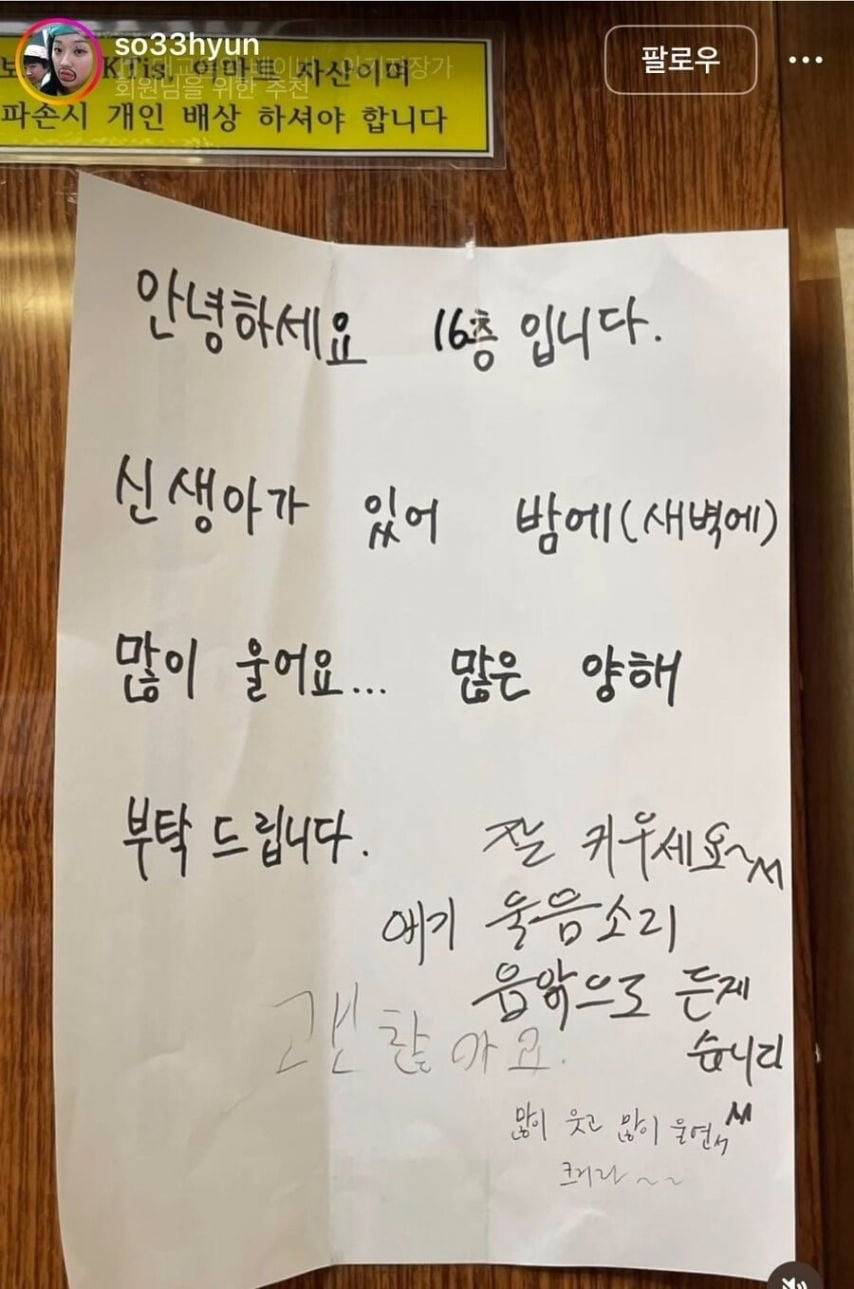 so33hyun
팔로우
회원님을 위한 추천
KTis, 이마트 자산이며
파손시 개인 배상 하셔야 합니다
안녕하세요 16층 입니다.
신생아가 있어 밤에(새벽에)
많이 울어요... 많은 양해
부탁 드립니다.
잘 키우세요~^^
애기 울음소리
음악으로 듣게
습니다
괜찮아요.
많이 웃고 많이 울면서^^
크거라~~